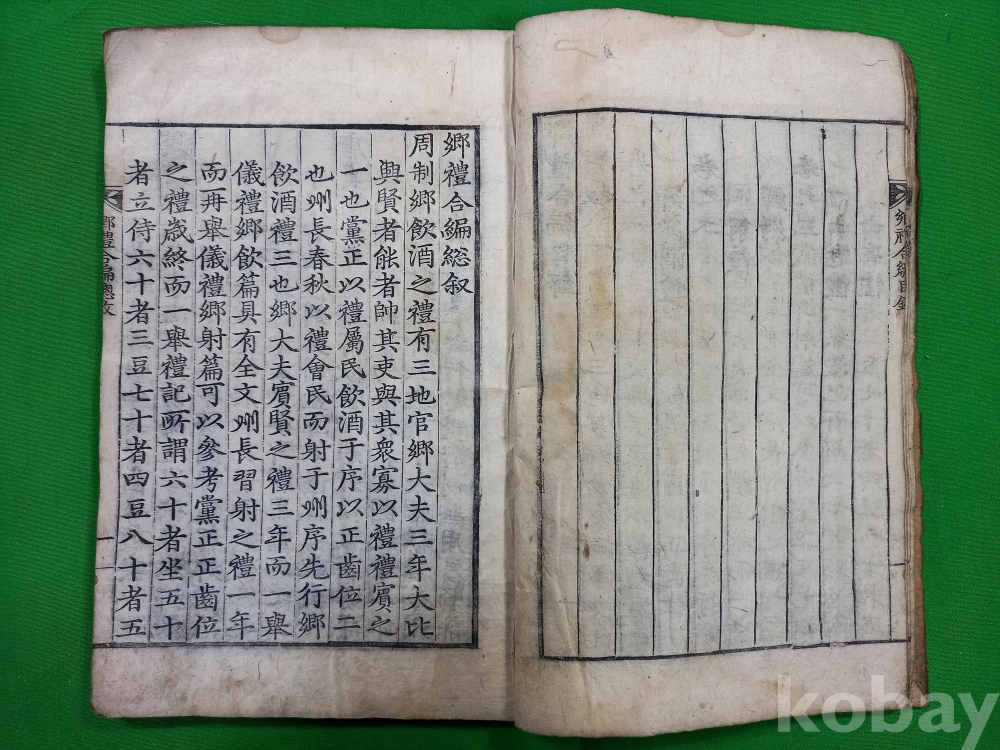 鄉禮合編総叙
周制鄉飮酒之禮有三地官鄉大夫三年大比
興賢者能者帥其吏與其衆寡以禮禮賓之
一也黨正以禮屬民飮酒于序以正齒位二
也州長春秋以禮會民而射于州序先行鄉
飮酒禮三也鄉大夫賓賢之禮三年而一舉
儀禮鄉飮篇具有全文州長習射之禮一年
而再舉儀禮鄉射篇可以參考黨正正齒位
之禮歲終而一舉禮記所謂六十者坐五十
者立侍六十者三豆七十者四豆八十者五
鄉禮合編總敘 一
鄉禮合編目錄 一
kobay